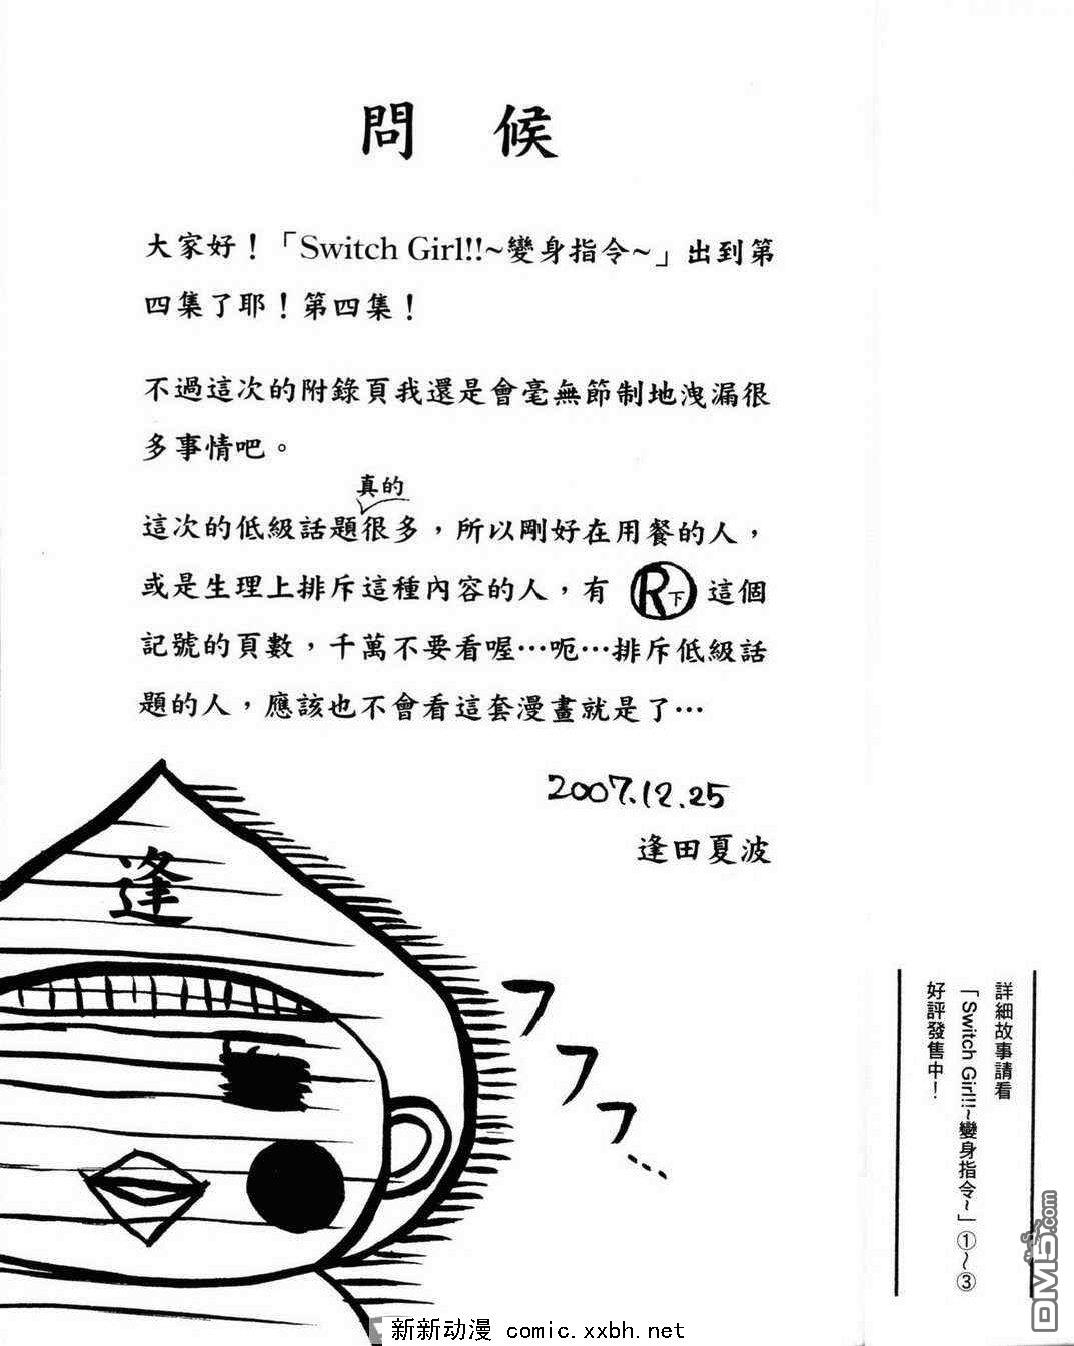 問候
大家好！「Switch Girl!!~變身指令~」出到第
四集了耶！第四集！
不過這次的附錄頁我還是會毫無節制地洩漏很
多事情吧。
真的
這次的低級話題很多，所以剛好在用餐的人，
或是生理上排斥這種內容的人，有 R下 這個
記號的頁數，千萬不要看喔…呃…排斥低級話
題的人，應該也不會看這套漫畫就是了…
2007.12.25
逢田夏波
逢
フフフ…
詳細故事請看
「Switch Girl!!~變身指令~」①~③
好評發售中！
DM5.com
新新动漫 comic.xxbh.net